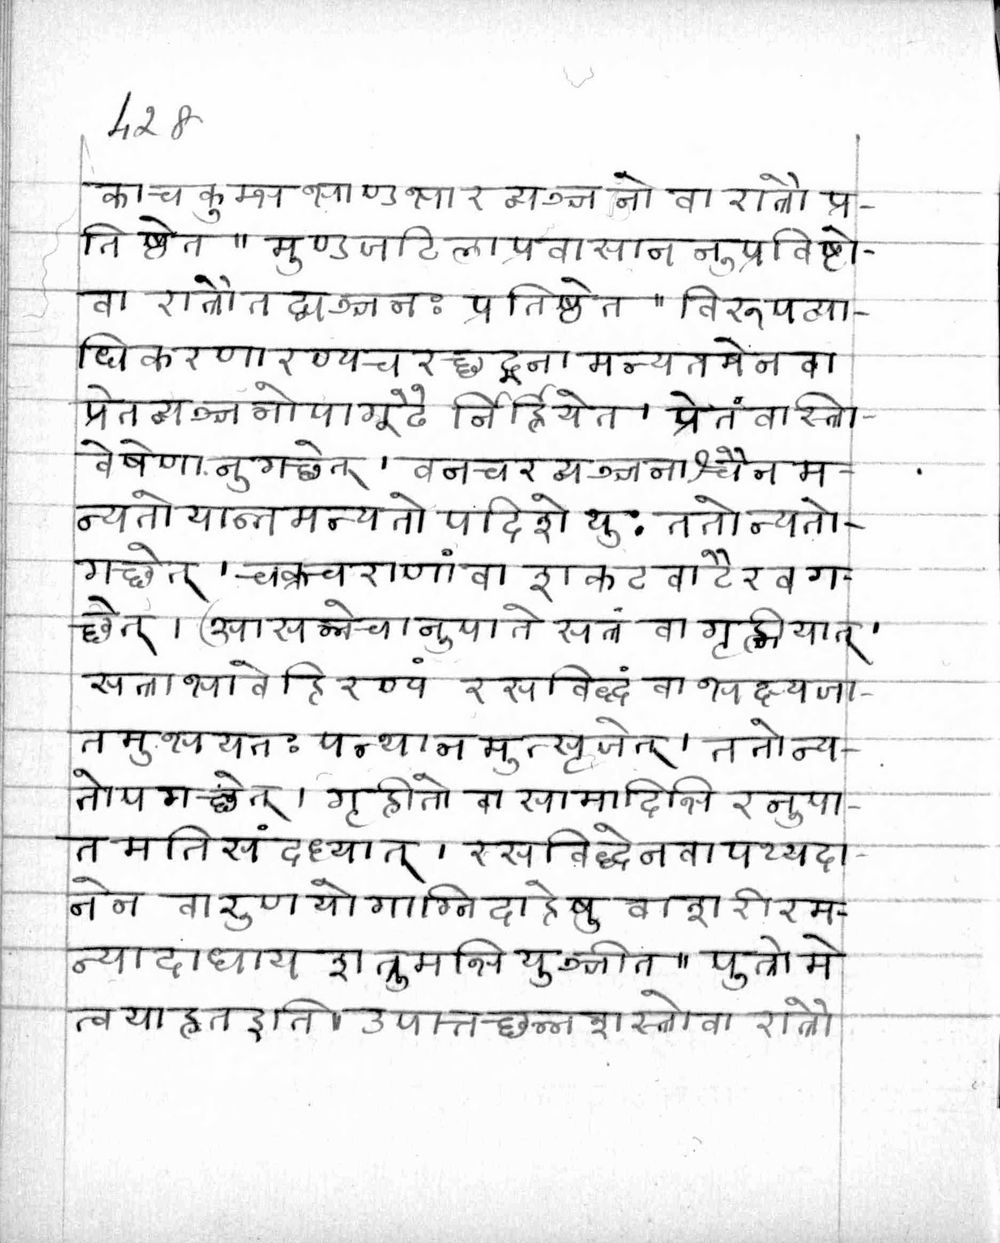 428
काचकुम्भभाण्डभारव्यञ्जनो वा रात्रौ प्र-
तिष्ठेत ॥ मुण्डजटिलाप्रवासाननुप्रविष्टो-
वा रात्रौ तद्व्यञ्जनः प्रतिष्ठेत ॥ विरूपव्या-
धिकरणारण्यचरच्छद्मनामन्यतमेन वा
प्रेतव्यञ्जनोपागूढै र्निर्ह्रियेत । प्रेतं वा स्त्रि-
वेषेणानुगच्छेत् । वनचरव्यञ्जनाश्चैनम-
न्यतोयान्तमन्यतोपदिशेयुः ततोन्यतो-
गच्छेत् । चक्रचराणां वा शकटवाटैरवग-
छेत् । (आसन्नेचानुपाते सत्रं वा गृह्णियात् ।
सत्राभावे हिरण्यं रसविद्धं वा भक्ष्यजा-
तमुभयतः पन्थानमुत्सृजेत् । ततोन्य-
तोपगच्छेत् । गृहीतो वा सामादिभिरनुपा-
तमतिसंदध्यात् । रसविद्धेन वा पथ्यदा-
नेन वारुणयोगाग्निदाहेषु वा शरीरम-
न्यादाधाय शत्रुमभियुञ्जीत ॥ पुत्रो मे
त्वया हत इति । उपात्तच्छन्नशस्त्रो वा रात्रौ